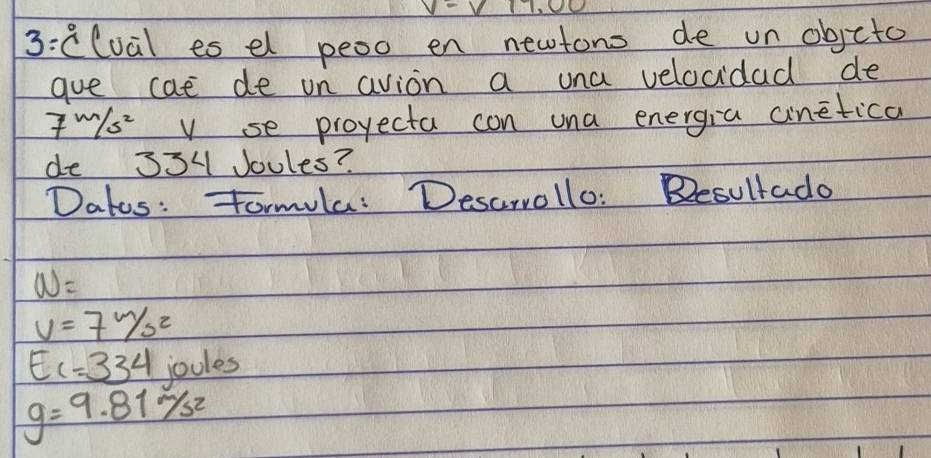 3=¿Cuál es el peso en newtons de un objeto
que cae de un avión a una velocidad de
7 m/s² y se proyecta con una energia cinética
de 334 Joules?
Datos: Formula: Desarrollo: Resultado
W=
V = 7 m/s²
Ec=334 joules
g= 9.81 m/s²